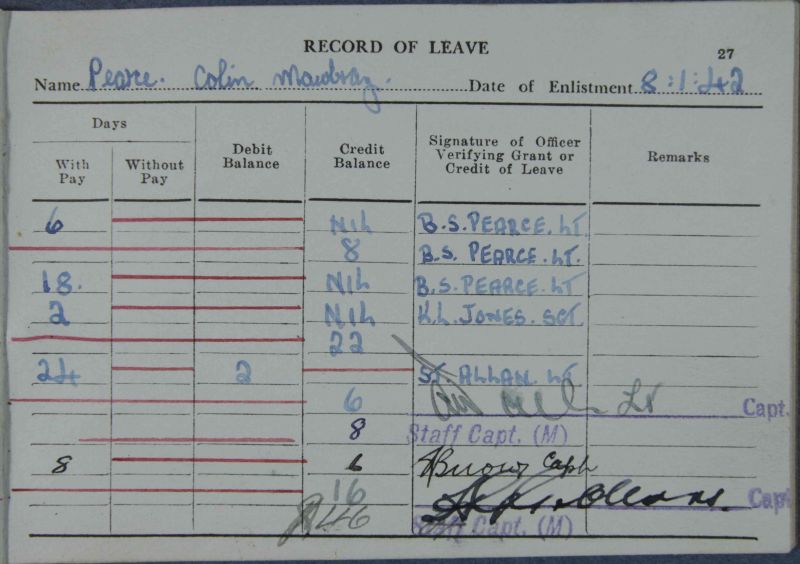 RECORD OF LEAVE
27
Name Pearce. Colin Mowbray. Date of Enlistment 8:1:42
Days
With Pay Without Pay Debit Balance Credit Balance Signature of Officer Verifying Grant or Credit of Leave Remarks
6 NIL B.S. PEARCE. LT.
8 B.S. PEARCE. LT.
18. NIL B.S. PEARCE. LT
2 NIL K.L. JONES. SGT
22
24 2 ALLAN. LT
6 Lt Capt.
8 Staff Capt. (M)
8 6 Capt
16 Capt
46 Staff Capt. (M)